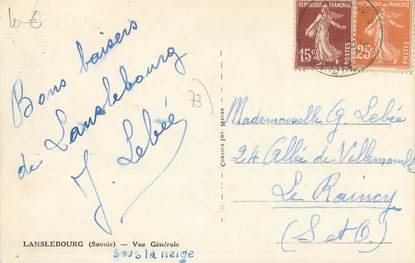 6€
RÉPUBLIQUE FRANÇAISE
POSTES
15c
RÉPUBLIQUE FRANÇAISE
POSTES
25c
Bons baisers
de Lanslebourg
J. Lebée
73
Mademoiselle G. Lebée
24 Allée de Villemomble
Le Raincy
(S et O.)
LANSLEBOURG (Savoie) — Vue Générale
sous la neige